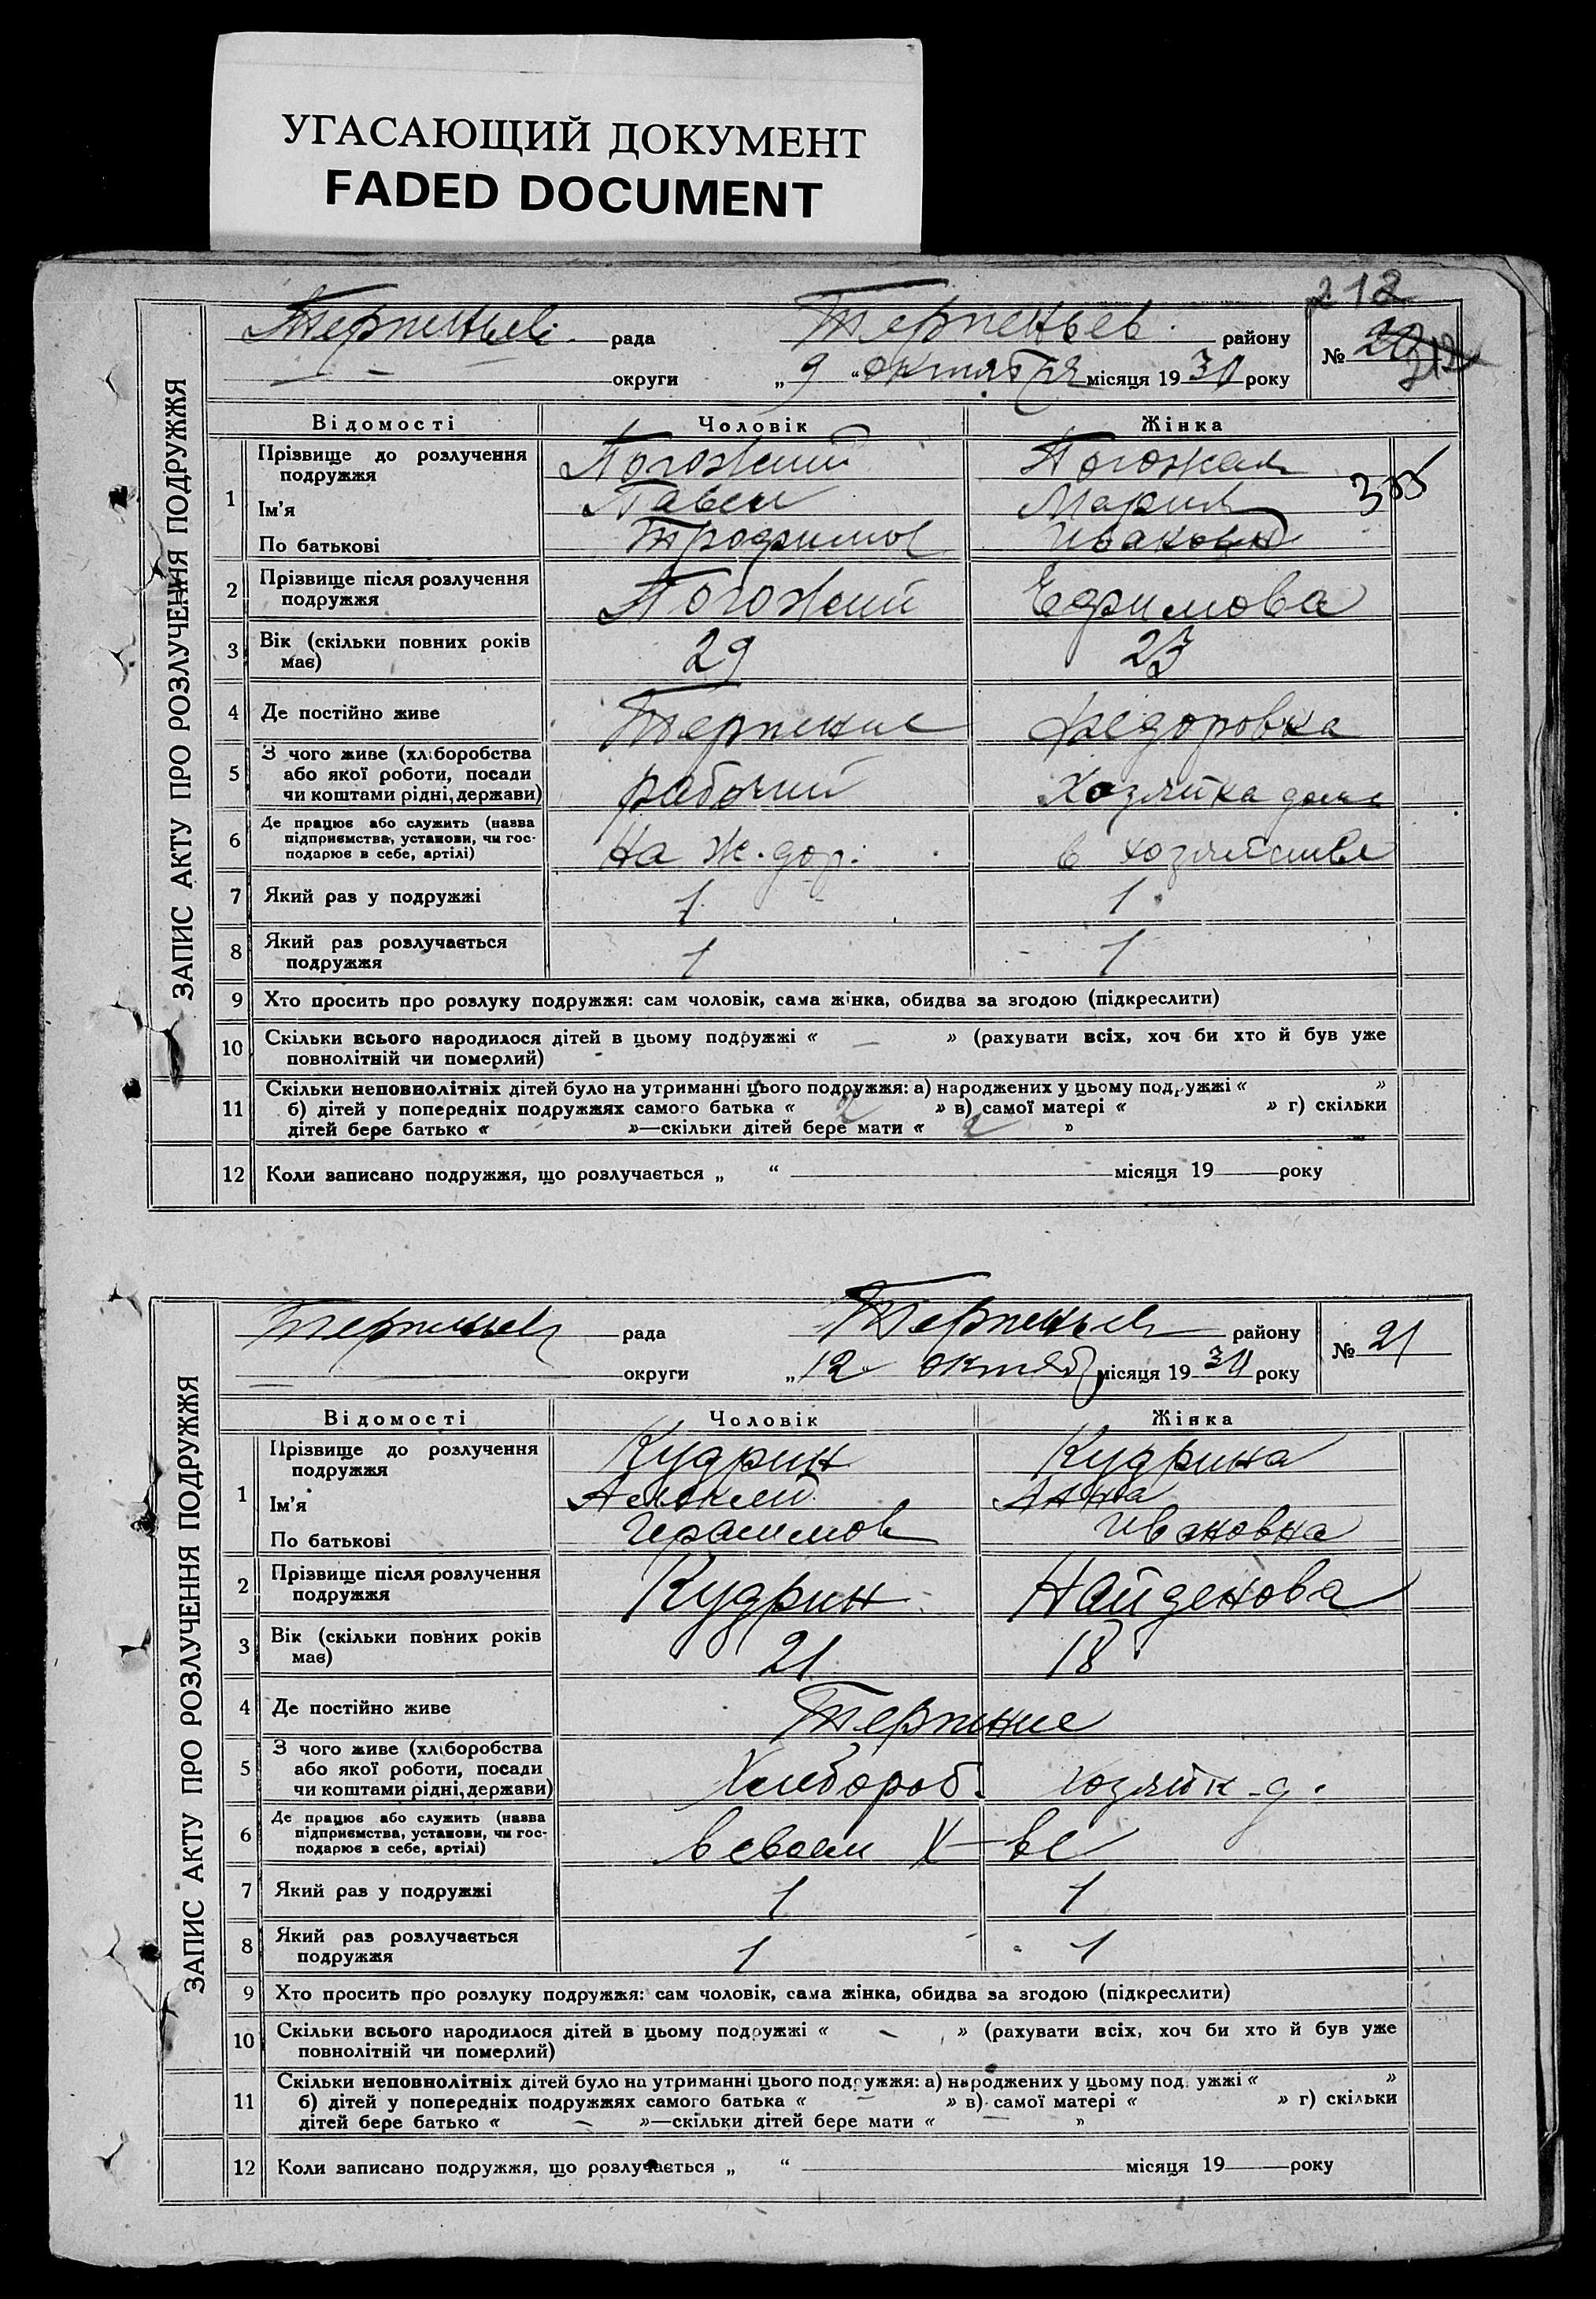 УГАСАЮЩИЙ ДОКУМЕНТ
FADED DOCUMENT
212
ЗАПИС АКТУ ПРО РОЗЛУЧЕННЯ ПОДРУЖЖЯ
рада Терпеньев. району
№ 20 212
округи „9“ октября місяця 1930 року
Відомості Чоловік Жінка
1 Прізвище до розлучення подружжя Погожий Погожая
Ім'я Павел Мария 355
По батькові Трофимов Ивановн
2 Прізвище після розлучення подружжя Погожий Ефимова
3 Вік (скільки повних років має) 29 23
4 Де постійно живе Терпение Федоровка
5 З чого живе (хліборобства або якої роботи, посади чи коштами рідні, держави) рабочий Хозяйка дома
6 Де працює або служить (назва підприємства, установи, чи господарює в себе, артілі) на ж. дор. в хозяйстве
7 Який раз у подружжі 1 1
8 Який раз розлучається подружжя 1 1
9 Хто просить про розлуку подружжя: сам чоловік, сама жінка, обидва за згодою (підкреслити)
10 Скільки всього народилося дітей в цьому подружжі « — » (рахувати всіх, хоч би хто й був уже
повнолітній чи померлий)
11 Скільки неповнолітніх дітей було на утриманні цього подружжя: а) народжених у цьому подружжі « »
б) дітей у попередніх подружжях самого батька « 2 » в) самої матері « » г) скільки
дітей бере батько « »—скільки дітей бере мати « 2 »
12 Коли записано подружжя, що розлучається „ “ місяця 19 року
ЗАПИС АКТУ ПРО РОЗЛУЧЕННЯ ПОДРУЖЖЯ
рада району
№ 21
округи „12 октяб місяця 1930 року
Відомості Чоловік Жінка
1 Прізвище до розлучення подружжя Кудрин Кудрина
Ім'я Алексей Анна
По батькові Ивановна
2 Прізвище після розлучення подружжя Кудрин Найденова
3 Вік (скільки повних років має) 21 18
4 Де постійно живе Терпение
5 З чого живе (хліборобства або якої роботи, посади чи коштами рідні, держави) Хлебороб. хозяйк. д.
6 Де працює або служить (назва підприємства, установи, чи господарює в себе, артілі) в своем х-ве
7 Який раз у подружжі 1 1
8 Який раз розлучається подружжя 1 1
9 Хто просить про розлуку подружжя: сам чоловік, сама жінка, обидва за згодою (підкреслити)
10 Скільки всього народилося дітей в цьому подружжі « — » (рахувати всіх, хоч би хто й був уже
повнолітній чи померлий)
11 Скільки неповнолітніх дітей було на утриманні цього подружжя: а) народжених у цьому подружжі « »
б) дітей у попередніх подружжях самого батька « — » в) самої матері « » г) скільки
дітей бере батько « — »—скільки дітей бере мати « — »
12 Коли записано подружжя, що розлучається „ “ місяця 19 року